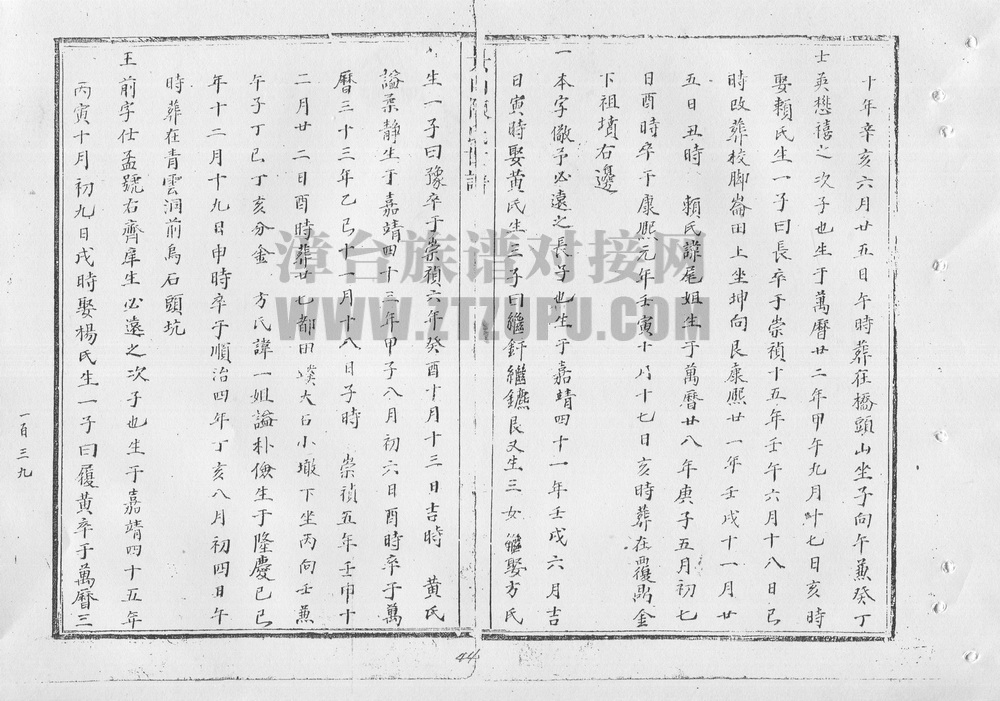 十年辛亥六月廿五日午時葬在橋頭山坐子向午兼癸丁
士英懋禧之次子也生于萬曆廿二年甲午九月廿七日亥時
娶賴氏生一子曰長卒于崇禎十五年壬午六月十八日巳
時改葬校脚崙田上坐坤向艮康熙廿一年壬戌十一月廿
五日丑時 賴氏諱尾姐生于萬曆廿八年庚子五月初七
日酉時卒于康熙元年壬寅十月十七日亥時葬在覆鼎金
下祖墳右邊
一本字儆予必遠之長子也生于嘉靖四十一年壬戌六月吉
日寅時娶黃氏生三子曰繼釬繼鑣艮又生三女 繼娶方氏
生一子曰豫卒于崇禎六年癸酉十月十三日吉時 黃氏
謚柔靜生于嘉靖四十三年甲子八月初六日酉時卒于萬
曆三十三年乙巳十一月十八日子時 崇禎五年壬申十
二月廿二日酉時葬廿七都田墣大石小墩下坐丙向壬兼
午子丁巳丁亥分金 方氏諱一姐謚朴儉生于隆慶己巳
年十二月十九日申時卒于順治四年丁亥八月初四日午
時葬在青雲洞前烏石頭坑
王前字仕孟號右齊庠生必遠之次子也生于嘉靖四十五年
丙寅十月初九日戌時娶楊氏生一子曰履黃卒于萬曆三
一百三九
44
漳台族谱对接网
WWW.ZTZUPU.COM